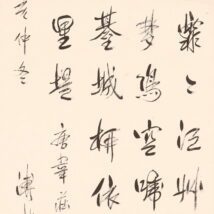 霏〻江艸
夢鳥空啼
臺城柳依
里堤 唐韋莊
仲冬 溥